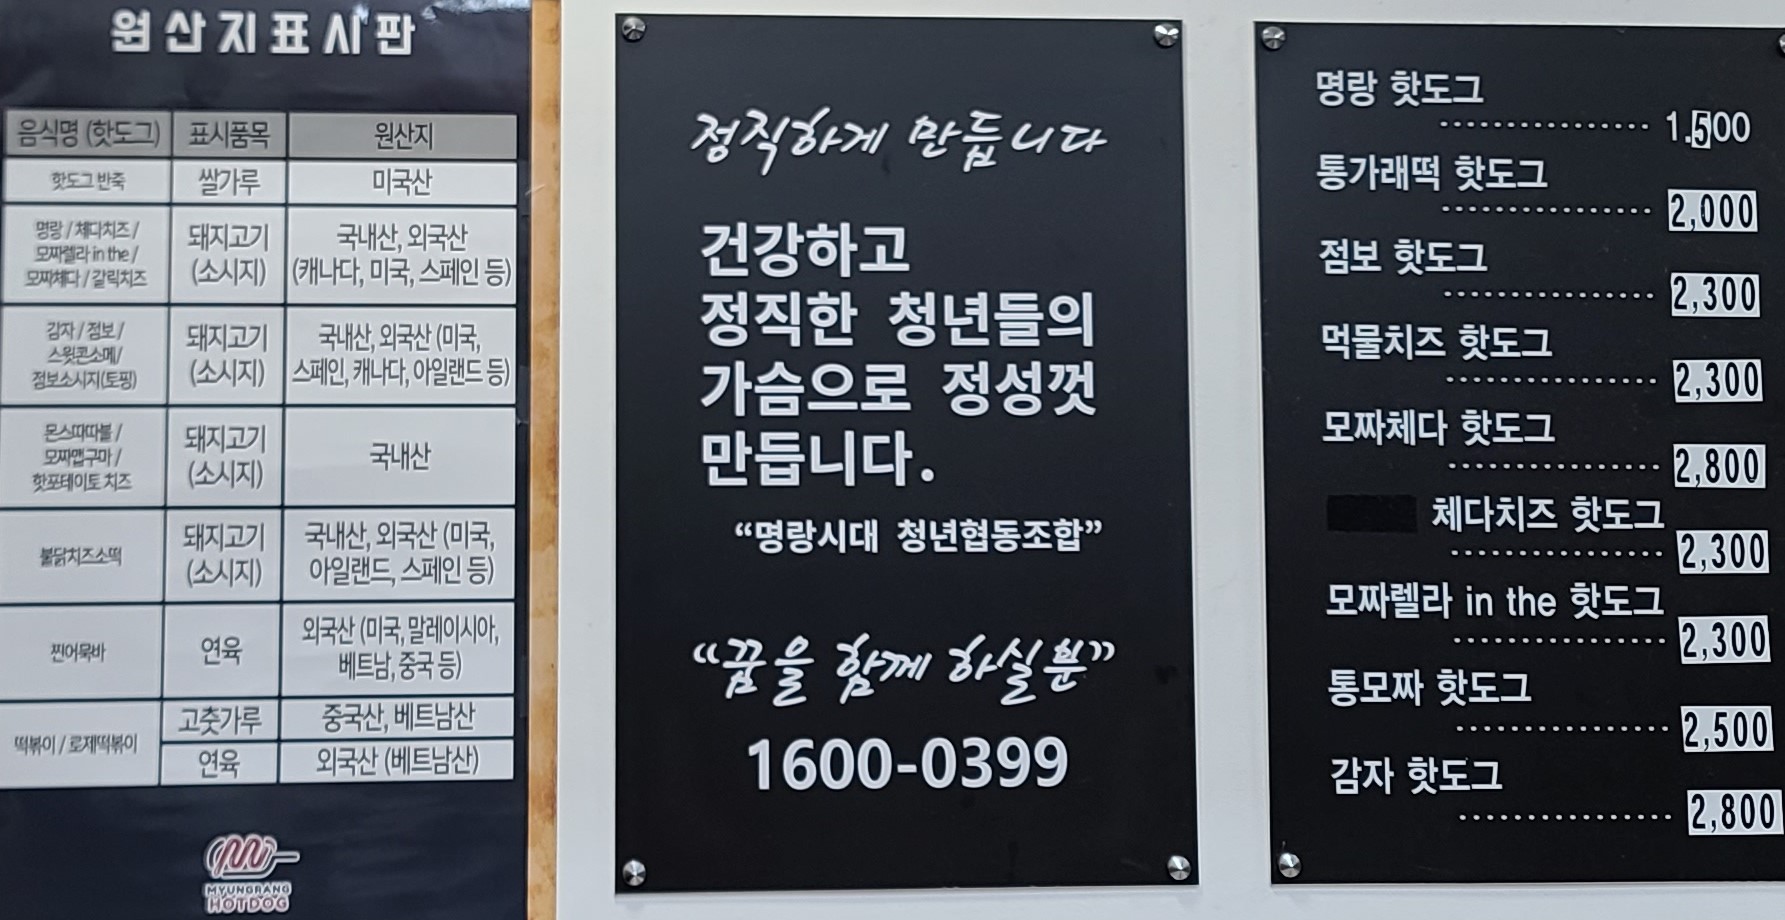 원산지표시판
음식명 (핫도그) 표시품목 원산지
핫도그 반죽 쌀가루 미국산
명랑 / 체다치즈 /
모짜렐라 in the /
모짜체다 / 갈릭치즈
돼지고기
(소시지)
국내산, 외국산
(캐나다, 미국, 스페인 등)
감자 / 점보 /
스윗콘소메/
점보소시지(토핑)
돼지고기
(소시지)
국내산, 외국산 (미국,
스페인, 캐나다, 아일랜드 등)
몬스따따블 /
모짜맵구마 /
핫포테이토 치즈
돼지고기
(소시지)
국내산
불닭치즈소떡
돼지고기
(소시지)
국내산, 외국산 (미국,
아일랜드, 스페인 등)
찐어묵바
연육
외국산 (미국, 말레이시아,
베트남, 중국 등)
떡볶이 / 로제떡볶이
고춧가루 중국산, 베트남산
연육 외국산 (베트남산)
MYUNGRANG
HOTDOG
정직하게 만듭니다
건강하고
정직한 청년들의
가슴으로 정성껏
만듭니다.
“명랑시대 청년협동조합”
“꿈을 함께 하실분”
1600-0399
명랑 핫도그
1.500
통가래떡 핫도그
2,000
점보 핫도그
2,300
먹물치즈 핫도그
2,300
모짜체다 핫도그
2,800
체다치즈 핫도그
2,300
모짜렐라 in the 핫도그
2,300
통모짜 핫도그
2,500
감자 핫도그
2,800